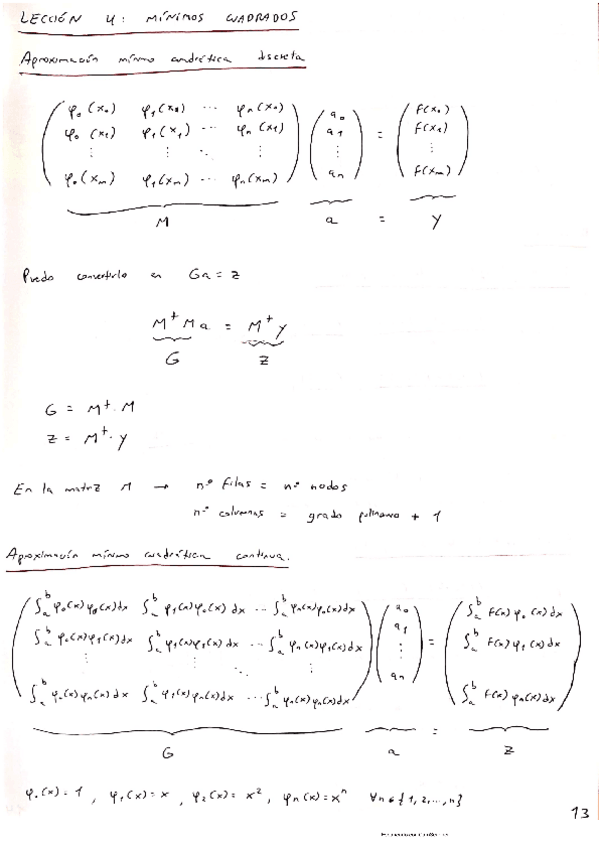 LECCIÓN 4: MÍNIMOS CUADRADOS
Aproximación mínimo cuadrática discreta
φ₀(x₀) φ₁(x₀) ⋯ φₙ(x₀) a₀ f(x₀)
φ₀(x₁) φ₁(x₁) ⋯ φₙ(x₁) a₁ = f(x₁)
⋮ ⋮ ⋱ ⋮ ⋮ ⋮
φ₀(xₘ) φ₁(xₘ) ⋯ φₙ(xₘ) aₙ f(xₘ)
M a = Y
Puedo convertirlo en Ga = Z
Mᵗ M a = Mᵗ Y
G Z
G = Mᵗ · M
Z = Mᵗ · Y
En la matriz M → nº filas = nº nodos
nº columnas = grado polinomio + 1
Aproximación mínimo cuadrática continua.
∫ₐᵇ φ₀(x)φ₀(x)dx ∫ₐᵇ φ₁(x)φ₀(x)dx ⋯ ∫ₐᵇ φₙ(x)φ₀(x)dx a₀ ∫ₐᵇ f(x)φ₀(x)dx
∫ₐᵇ φ₀(x)φ₁(x)dx ∫ₐᵇ φ₁(x)φ₁(x)dx ⋯ ∫ₐᵇ φₙ(x)φ₁(x)dx a₁ = ∫ₐᵇ f(x)φ₁(x)dx
⋮ ⋮ ⋱ ⋮ ⋮
∫ₐᵇ φ₀(x)φₙ(x)dx ∫ₐᵇ φ₁(x)φₙ(x)dx ⋯ ∫ₐᵇ φₙ(x)φₙ(x)dx aₙ ∫ₐᵇ f(x)φₙ(x)dx
G a = Z
φ₀(x) = 1, φ₁(x) = x, φ₂(x) = x², φₙ(x) = xⁿ ∀n∈{1,2,...,n}
13